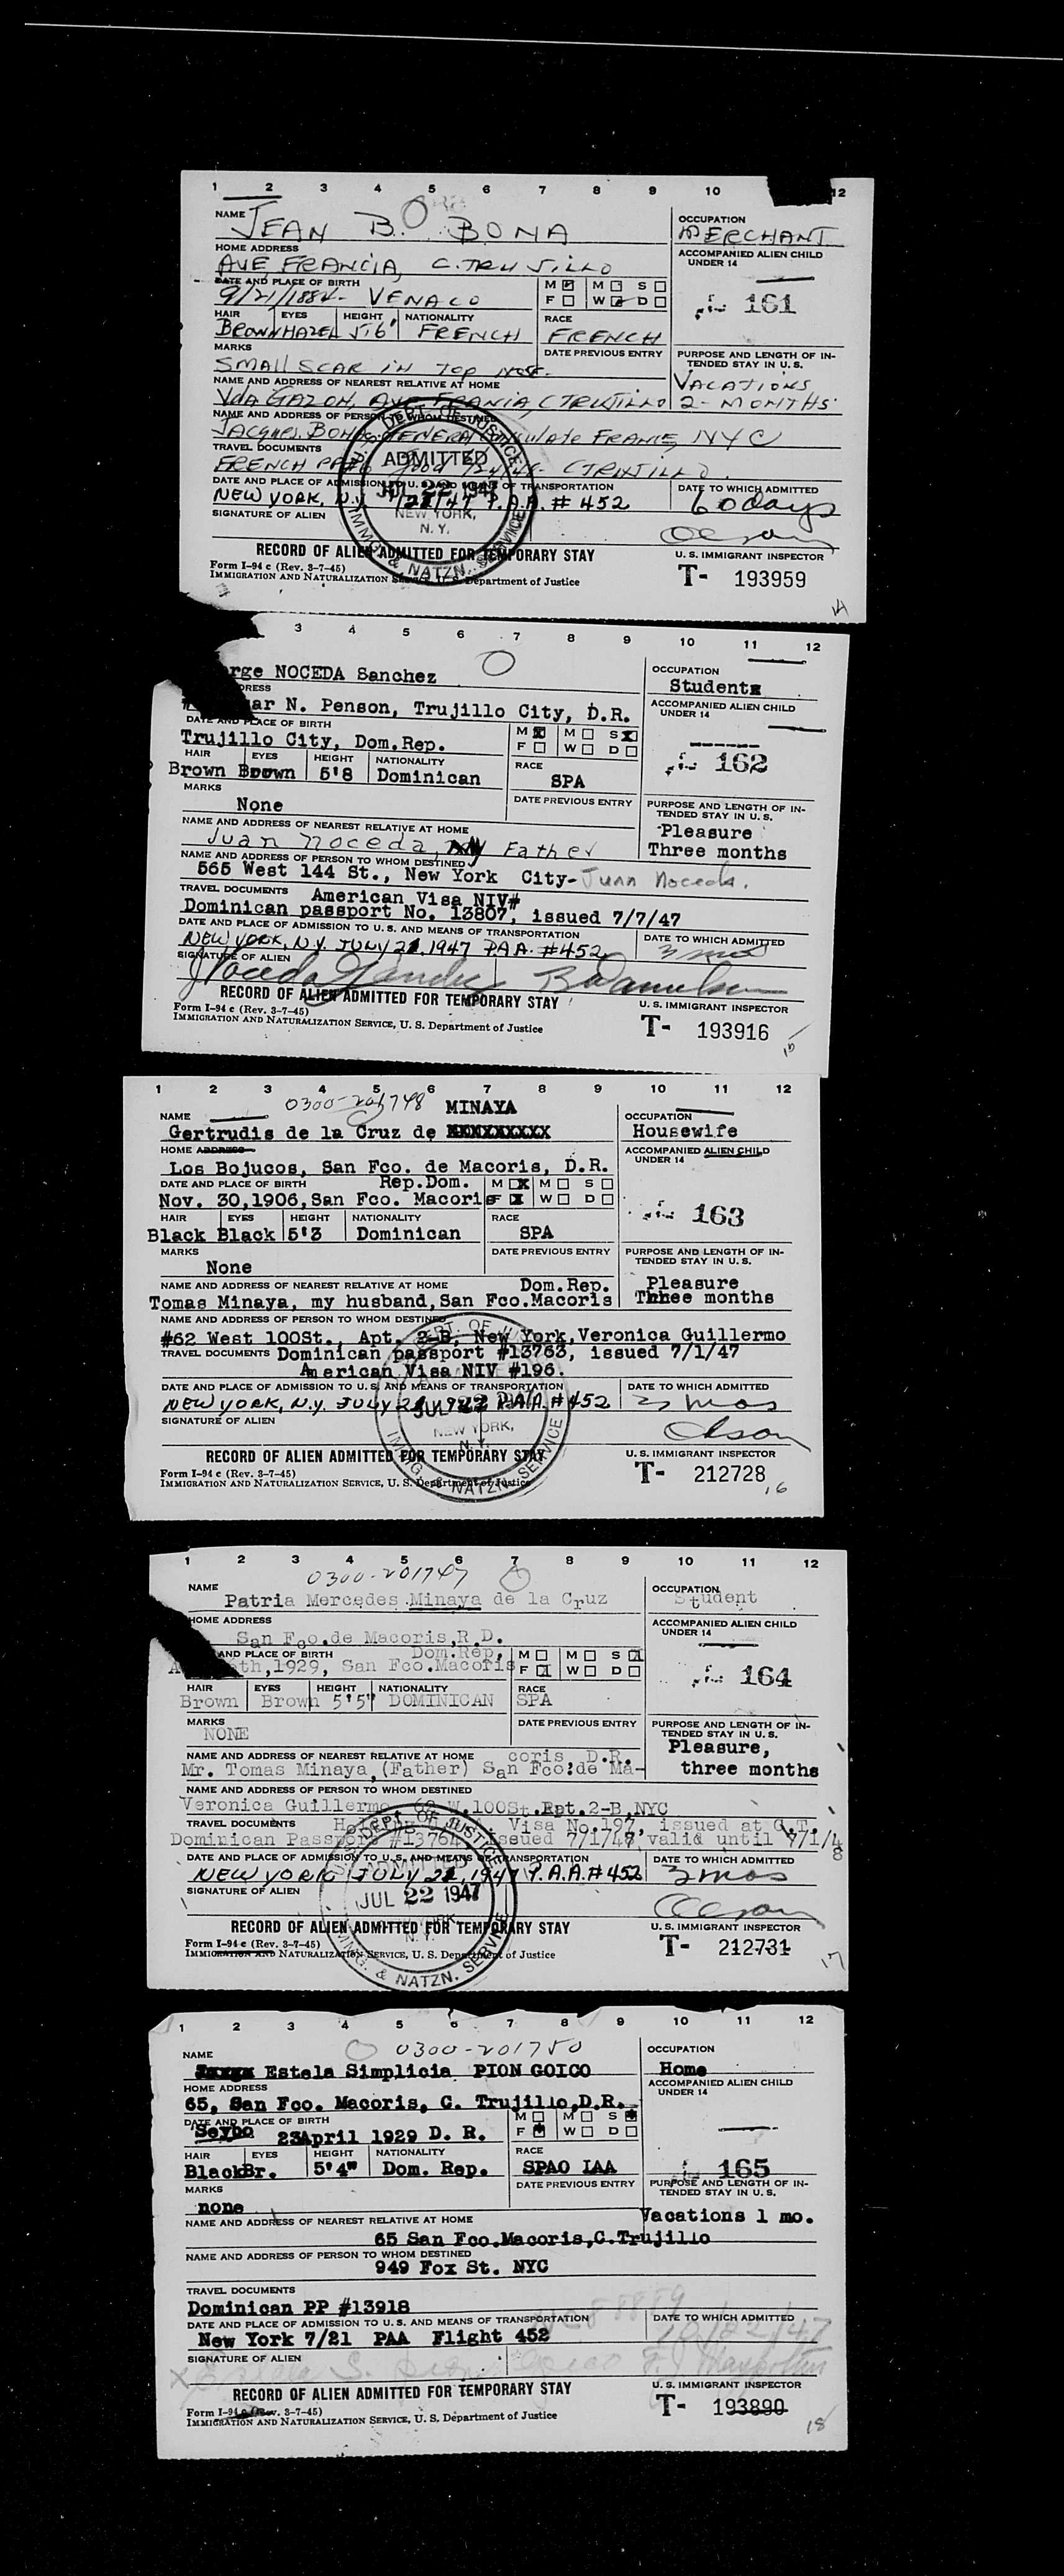 1 2 3 4 5 6 7 8 9 10 12
NAME JEAN B. BONA
OCCUPATION
MERCHANT
HOME ADDRESS
AVE FRANCIA, C. TRUJILLO
ACCOMPANIED ALIEN CHILD UNDER 14
DATE AND PLACE OF BIRTH
9/21/1884 - VENACO
M F M W S D
161
HAIR EYES HEIGHT NATIONALITY RACE
BROWN HAZEL 5'6' FRENCH FRENCH
MARKS
SMALL SCAR IN TOP NOSE.
DATE PREVIOUS ENTRY
PURPOSE AND LENGTH OF INTENDED STAY IN U. S.
VACATIONS
2 - MONTHS
NAME AND ADDRESS OF NEAREST RELATIVE AT HOME
Vda GAZON, AVE FRANCIA, C TRUJILLO
NAME AND ADDRESS OF PERSON TO WHOM DESTINED
JACQUES BONA GENERAL Consulate FRANCE, NYC
TRAVEL DOCUMENTS
FRENCH C TRUJILLO.
DATE AND PLACE OF ADMISSION TO U. S. AND MEANS OF TRANSPORTATION
NEW YORK, N.Y. 7/21/47 P.A.A. # 452
DATE TO WHICH ADMITTED
60 days
SIGNATURE OF ALIEN
Olson
DEPT. OF JUSTICE
ADMITTED
JUL 22 1947
NEW YORK,
N. Y.
IMMIG. & NATZN. SERVICE
RECORD OF ALIEN ADMITTED FOR TEMPORARY STAY
U. S. IMMIGRANT INSPECTOR
Form I-94 c (Rev. 3-7-45)
IMMIGRATION AND NATURALIZATION SERVICE, U. S. Department of Justice
T- 193959
14
3 4 5 6 7 8 9 10 11 12
rge NOCEDA Sanchez
OCCUPATION
Students
DRESS
ar N. Penson, Trujillo City, D.R.
ACCOMPANIED ALIEN CHILD UNDER 14
DATE AND PLACE OF BIRTH
Trujillo City, Dom.Rep.
M F M W S D
162
HAIR EYES HEIGHT NATIONALITY RACE
Brown Brown 5'8 Dominican SPA
MARKS
None
DATE PREVIOUS ENTRY
PURPOSE AND LENGTH OF INTENDED STAY IN U. S.
Pleasure
Three months
NAME AND ADDRESS OF NEAREST RELATIVE AT HOME
Juan Noceda, My Father
NAME AND ADDRESS OF PERSON TO WHOM DESTINED
565 West 144 St., New York City- Juan Noceda.
TRAVEL DOCUMENTS American Visa NIV#
Dominican passport No. 13807, issued 7/7/47
DATE AND PLACE OF ADMISSION TO U. S. AND MEANS OF TRANSPORTATION
NEW YORK, N.Y. JULY 21, 1947 P.A.A. #452
DATE TO WHICH ADMITTED
3 mos
SIGNATURE OF ALIEN
Noceda Sanchez
RECORD OF ALIEN ADMITTED FOR TEMPORARY STAY
U. S. IMMIGRANT INSPECTOR
Form I-94 c (Rev. 3-7-45)
IMMIGRATION AND NATURALIZATION SERVICE, U. S. Department of Justice
T- 193916
15
1 2 3 4 5 6 7 8 9 10 11 12
0300-201748 MINAYA
NAME
Gertrudis de la Cruz de
OCCUPATION
Housewife
HOME ADDRESS
Los Bojucos, San Fco. de Macoris, D.R.
ACCOMPANIED ALIEN CHILD UNDER 14
DATE AND PLACE OF BIRTH Rep.Dom.
Nov. 30,1906,San Fco. Macoris
M F M W S D
163
HAIR EYES HEIGHT NATIONALITY RACE
Black Black 5'3 Dominican SPA
MARKS
None
DATE PREVIOUS ENTRY
PURPOSE AND LENGTH OF INTENDED STAY IN U. S.
Pleasure
Three months
NAME AND ADDRESS OF NEAREST RELATIVE AT HOME Dom.Rep.
Tomas Minaya, my husband,San Fco.Macoris
NAME AND ADDRESS OF PERSON TO WHOM DESTINED
#62 West 100St., Apt. 2-B, New York,Veronica Guillermo
TRAVEL DOCUMENTS Dominican passport #13763, issued 7/1/47
American Visa NIV #196.
DATE AND PLACE OF ADMISSION TO U. S. AND MEANS OF TRANSPORTATION
NEW YORK, N.Y. JULY 21 1947 P.A.A. #452
DATE TO WHICH ADMITTED
3 mos
SIGNATURE OF ALIEN
Olson
JUL 22
NEW YORK,
N. Y.
IMMIG. & NATZN. SERVICE
RECORD OF ALIEN ADMITTED FOR TEMPORARY STAY
U. S. IMMIGRANT INSPECTOR
Form I-94 c (Rev. 3-7-45)
IMMIGRATION AND NATURALIZATION SERVICE, U. S. Department of Justice
T- 212728
16
1 2 3 4 5 6 7 8 9 10 11 12
0300-201747
NAME
Patria Mercedes Minaya de la Cruz
OCCUPATION
Student
HOME ADDRESS
San Fco.de Macoris,R.D.
ACCOMPANIED ALIEN CHILD UNDER 14
AND PLACE OF BIRTH Dom.Rep.
th,1929, San Fco.Macoris
M F M W S D
164
HAIR EYES HEIGHT NATIONALITY RACE
Brown Brown 5'5" DOMINICAN SPA
MARKS
NONE
DATE PREVIOUS ENTRY
PURPOSE AND LENGTH OF INTENDED STAY IN U. S.
Pleasure,
three months
NAME AND ADDRESS OF NEAREST RELATIVE AT HOME coris, D.R.
Mr. Tomas Minaya,(Father) San Fco.de Ma-
NAME AND ADDRESS OF PERSON TO WHOM DESTINED
Veronica Guillermo, 62 W.100St.Apt.2-B,NYC
TRAVEL DOCUMENTS Visa No.197, issued at C.T.
Dominican Passport #13764 issued 7/1/47 valid until 7/1/48
DATE AND PLACE OF ADMISSION TO U. S. AND MEANS OF TRANSPORTATION
NEW YORK JULY 21, 1947 P.A.A.#452
DATE TO WHICH ADMITTED
3 mos
SIGNATURE OF ALIEN
Olson
DEPT. OF JUSTICE
ADMITTED
JUL 22 1947
N. Y.
IMMIG. & NATZN. SERVICE
RECORD OF ALIEN ADMITTED FOR TEMPORARY STAY
U. S. IMMIGRANT INSPECTOR
Form I-94 c (Rev. 3-7-45)
IMMIGRATION AND NATURALIZATION SERVICE, U. S. Department of Justice
T- 212731
17
1 2 3 4 5 6 7 8 9 10 11 12
0300-201750
NAME
Estela Simplicia PION GOICO
OCCUPATION
Home
HOME ADDRESS
65, San Fco. Macoris, C. Trujillo,D.R.
ACCOMPANIED ALIEN CHILD UNDER 14
DATE AND PLACE OF BIRTH
Seybo 23April 1929 D. R.
M F M W S D
165
HAIR EYES HEIGHT NATIONALITY RACE
Black Br. 5'4" Dom. Rep. SPAO IAA
MARKS
none
DATE PREVIOUS ENTRY
PURPOSE AND LENGTH OF INTENDED STAY IN U. S.
Vacations 1 mo.
NAME AND ADDRESS OF NEAREST RELATIVE AT HOME
65 San Fco.Macoris,C.Trujillo
NAME AND ADDRESS OF PERSON TO WHOM DESTINED
949 Fox St. NYC
TRAVEL DOCUMENTS
Dominican PP #13918
DATE AND PLACE OF ADMISSION TO U. S. AND MEANS OF TRANSPORTATION
New York 7/21 PAA Flight 452
DATE TO WHICH ADMITTED
10/22/47
SIGNATURE OF ALIEN
RECORD OF ALIEN ADMITTED FOR TEMPORARY STAY
U. S. IMMIGRANT INSPECTOR
Form I-94 c (Rev. 3-7-45)
IMMIGRATION AND NATURALIZATION SERVICE, U. S. Department of Justice
T- 193890
18